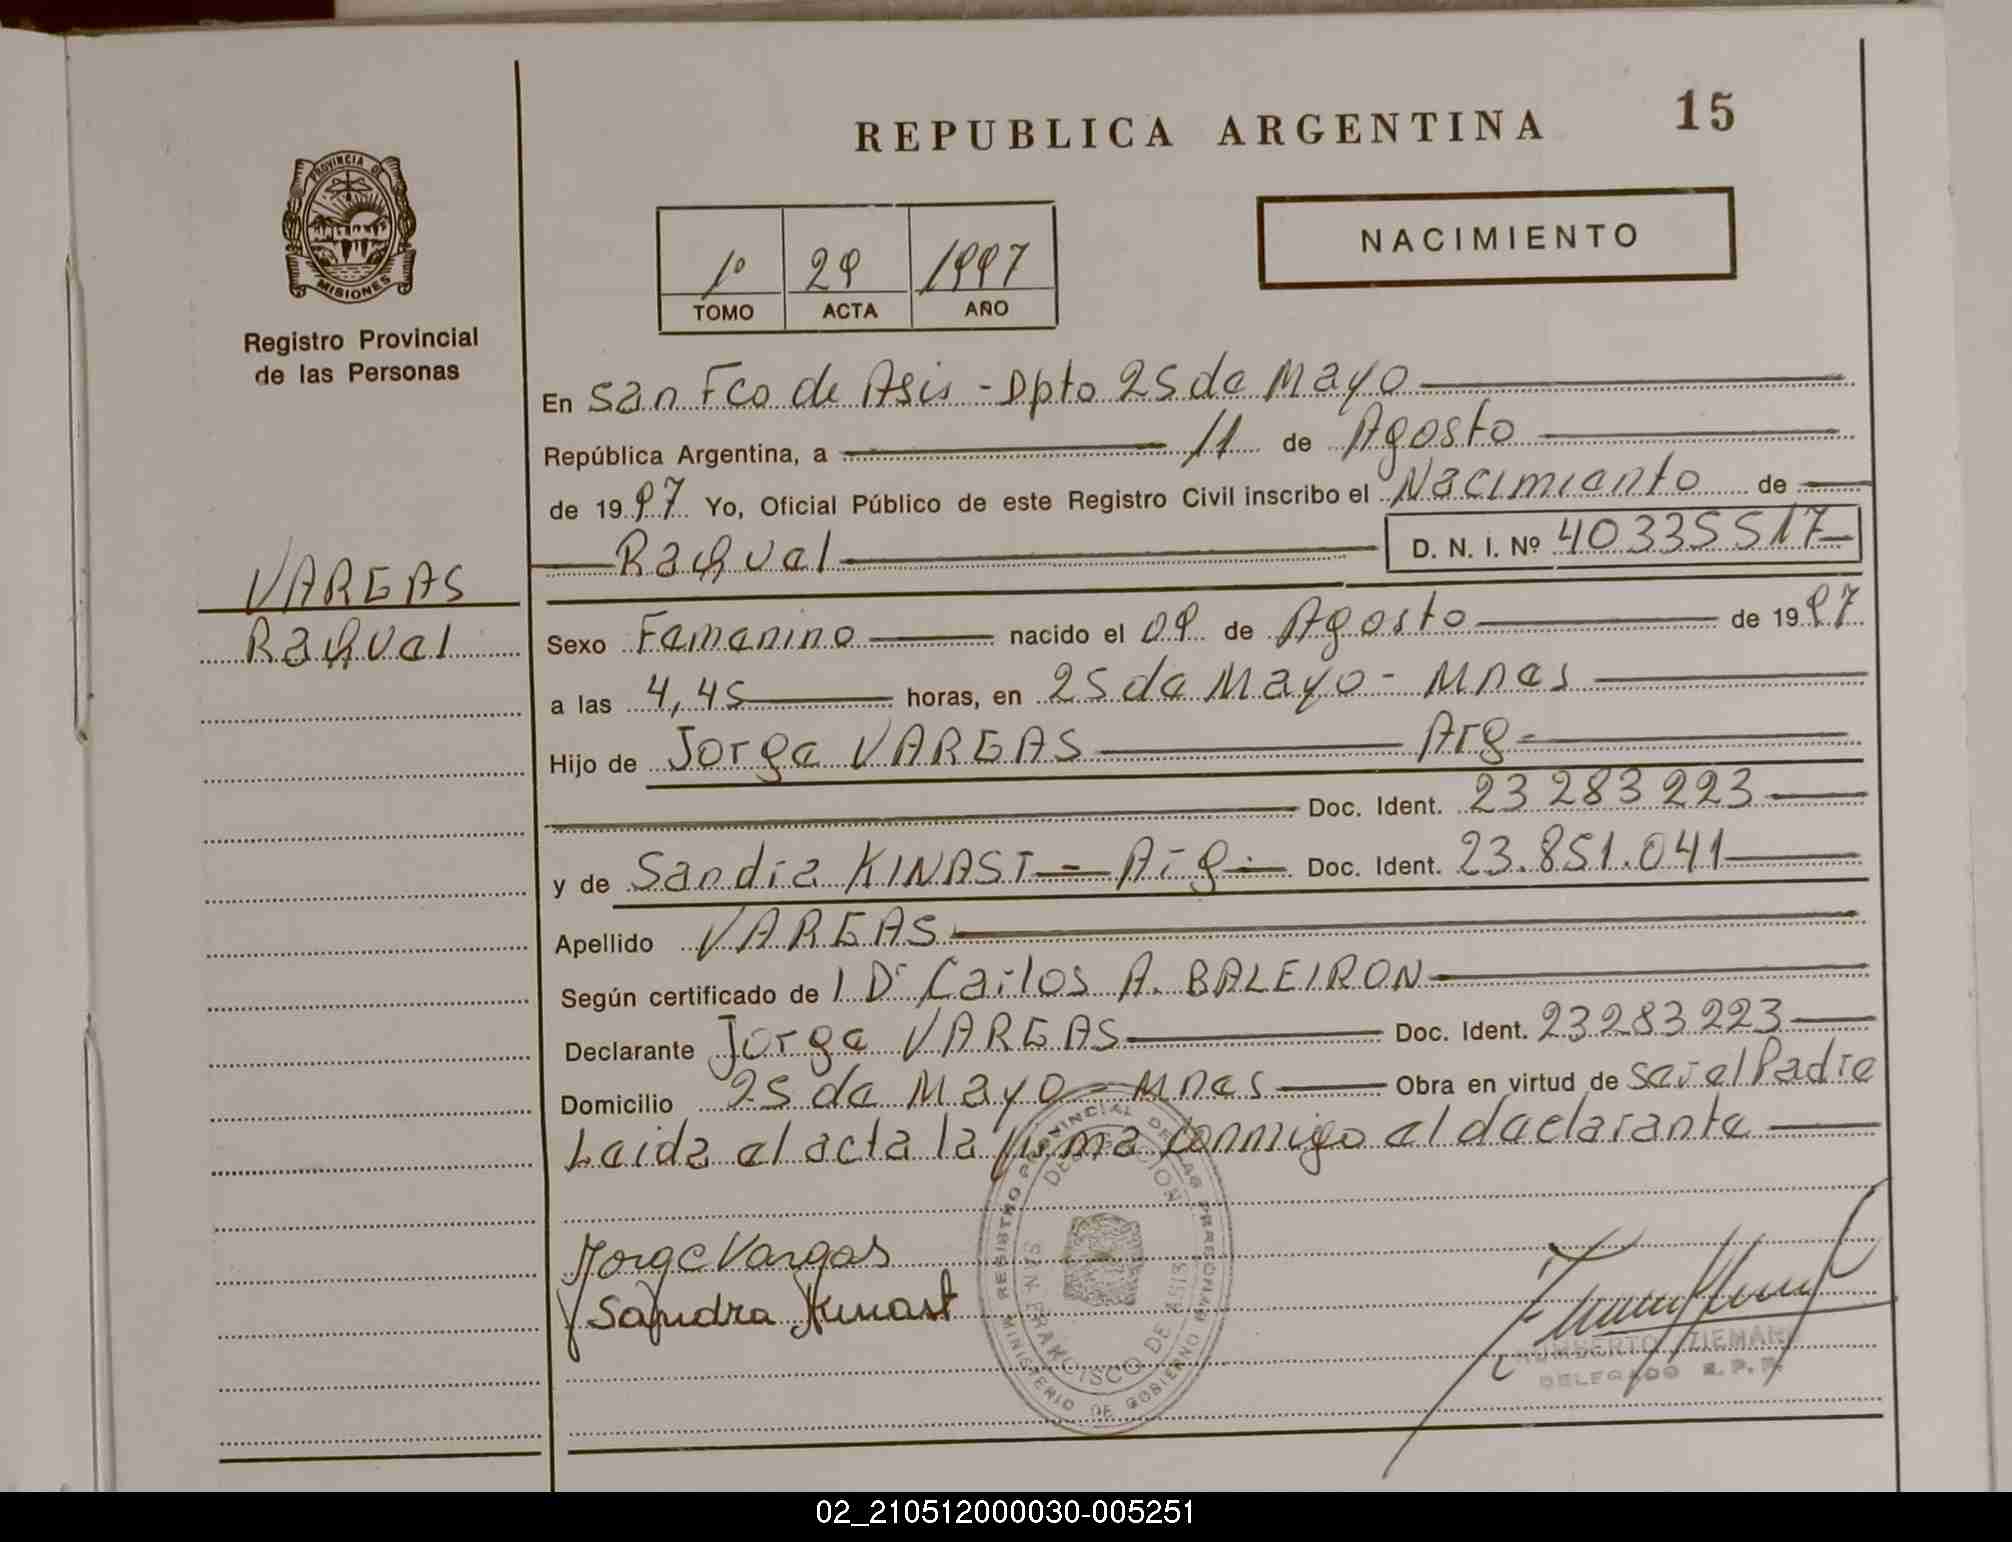 REPUBLICA ARGENTINA 15
PROVINCIA DE
MISIONES
NACIMIENTO
1º 29 1997
TOMO ACTA AÑO
Registro Provincial
de las Personas
En San Fco de Asis - Dpto 25 de Mayo
República Argentina, a 11 de Agosto
de 1997 Yo, Oficial Público de este Registro Civil inscribo el Nacimiento de
Raquel D. N. I. Nº 40335517
VARGAS
Raquel
Sexo Femenino nacido el 09 de Agosto de 1997
a las 4,45 horas, en 25 de Mayo - Mnes
Hijo de Jorge VARGAS Arg
Doc. Ident. 23 283 223
y de Sandra KINAST - Arg - Doc. Ident. 23.851.041
Apellido VARGAS
Según certificado de l Dr Carlos A. BALEIRON
Declarante Jorge VARGAS Doc. Ident. 23283223
Domicilio 25 de Mayo - Mnes Obra en virtud de ser el Padre
Leida el acta la firma conmigo el declarante
Jorge Vargas
Sandra Kinast
REGISTRO PROVINCIAL DE LAS PERSONAS
MINISTERIO DE GOBIERNO
DELEGACION
SAN FRANCISCO DE ASIS
HUMBERTO ZIEMANN
DELEGADO R. P. P.
02_210512000030-005251